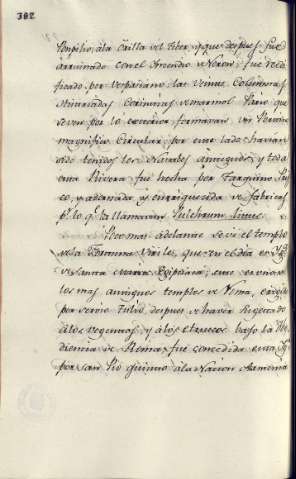 382
Pompilio, à la Orilla del Tiber, y que despues fue
arruinado con el Incendio de Neron, fue redi-
ficado por Vespasiano; las veinte Columnas
striadas Corintias de marmol Pario que
se ven por lo exterior, formavan un Portico
magnifico Circular; por este lado havian
sido tenidos los Navales antiguos, y toda
esta Rivera fué hecha por Tarquino Pris-
co, y adornada, y enriquecida de fabricas
pr. lo qe. la llamaron Pulchrum Litus.
Poco mas adelante se vé el templo
de la Fortuna Viril, que es el dia es Yg.ª
de Santa Maria Egipciaca; este es uno de
los mas antiguos templos de Roma, erigido
por Servio Tulio despues de haver sugetado
á los Vegentas, y á los Etruscos baxo la Obe-
diencia de Roma; fué concedida esta Yg.ª
por San Pio quinto à la Nacion Armenia